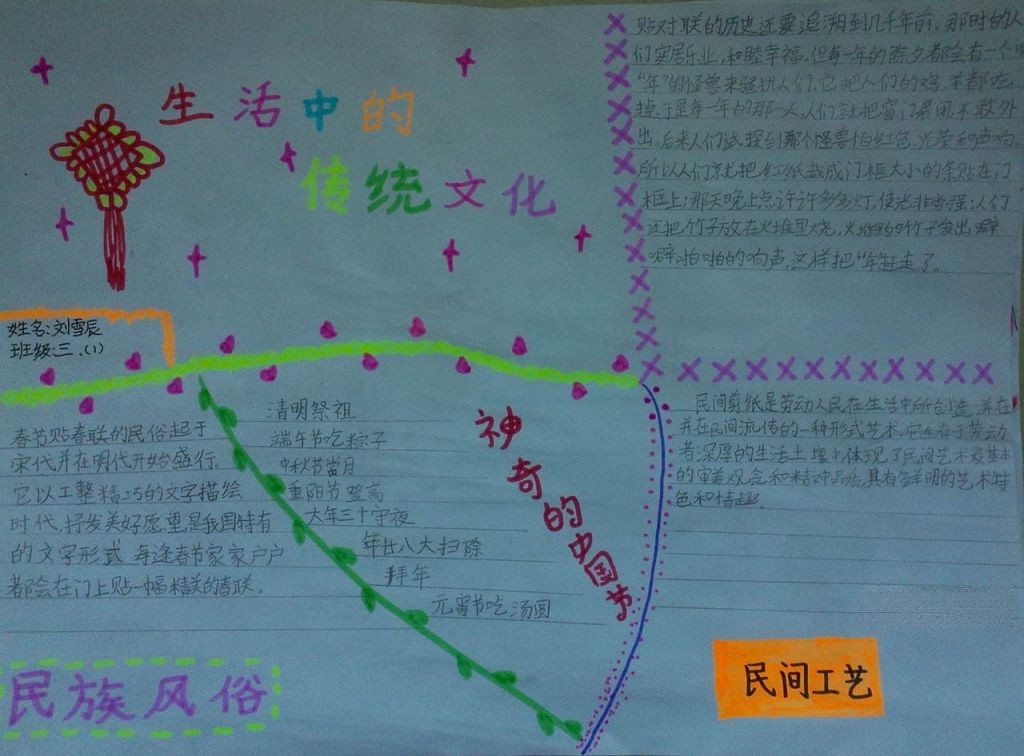 生活中的
传统文化
贴对联的历史还要追溯到几千年前。那时的人
们安居乐业，和睦幸福。但每一年的除夕都会有一个
"年"的怪兽来骚扰人们，它把人们的鸡、羊都吃
掉于是每一年的那一天，人们就把窗、门紧闭不敢外
出。后来人们试探到那个怪兽怕红色、光荣和声响。
所以人们就把红纸裁成门框大小的条贴在门
框上；那天晚上点许许多多灯，使光非常强；人们
还把竹子放在火堆里烧，火堆里的竹子发出噼
噼啪啪的响声，这样把"年"赶走了。
姓名：刘雪辰
班级：三.（1）
春节贴春联的民俗起于
宋代并在明代开始盛行。
它以工整精巧的文字描绘
时代，抒发美好愿望是我国特有
的文字形式 每逢春节家家户户
都会在门上贴一幅精美的春联。
清明祭祖
端午节吃粽子
中秋节赏月
重阳节登高
大年三十守夜
年廿八大扫除
拜年
元宵节吃汤圆
神奇的中国节
民间剪纸是劳动人民在生活中所创造，并在
并在民间流传的一种形式艺术，它生存于劳动
者深厚的生活土壤中体现了民间艺术最基本
的审美观念和精神品质，具有鲜明的艺术特
色和情趣。
民族风俗
民间工艺